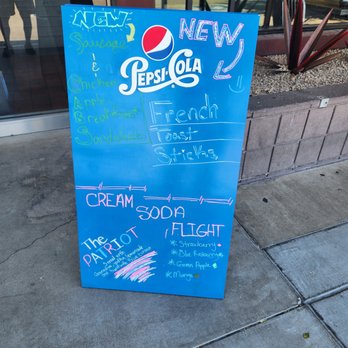 NEW
Sausage
&
Chicken
Apple
Breakfast
Sandwiches
PEPSI-COLA
NEW
French
Toast
Sticks
CREAM
SODA
FLIGHT
The
PATRIOT
* Strawberry
* Blue Raspberry
* Green Apple
* Mango